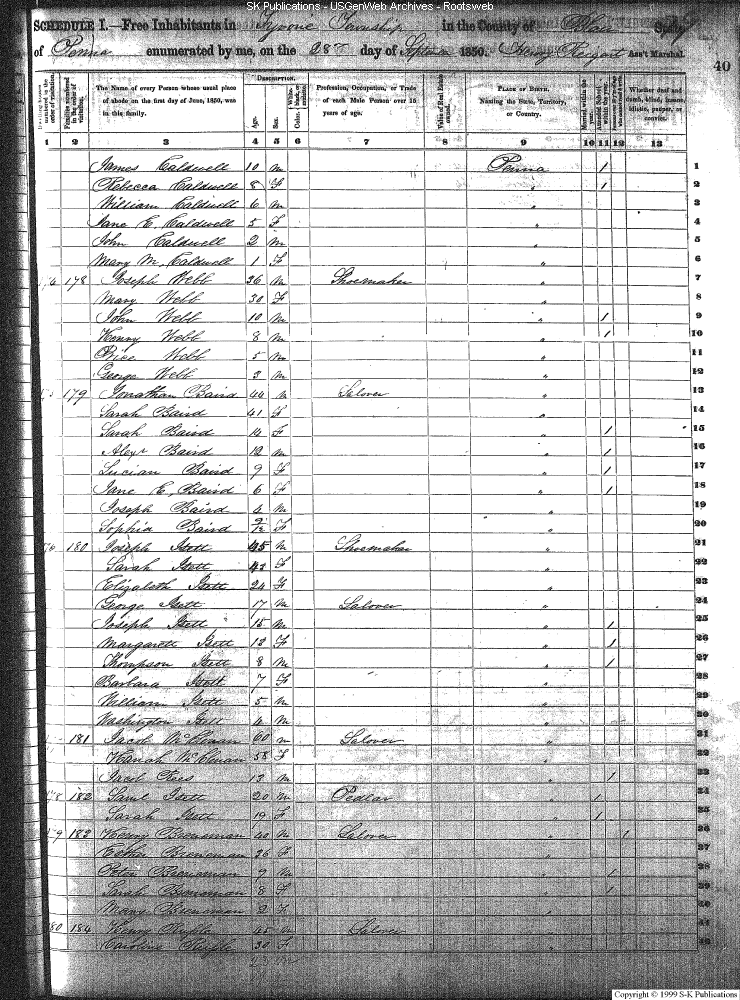 SK Publications - USGenWeb Archives - Rootsweb
SCHEDULE I.—Free Inhabitants in Tyrone Township in the County of Blair State
of Penna enumerated by me, on the 28th day of Septem 1850. Henry Ass't Marshal.
40
The Name of every Person whose usual place of abode on the first day of June, 1850, was in this family.
DESCRIPTION.
Age. Sex. Color.
Profession, Occupation, or Trade of each Male Person over 15 years of age.
Value of Real Estate owned.
PLACE OF BIRTH. Naming the State, Territory, or Country.
Married within the year.
Whether deaf and dumb, blind, insane, idiotic, pauper, or convict.
1 2 3 4 5 6 7 8 9 10 11 12 13
James Caldwell 10 m Penna / 1
Rebecca Caldwell 8 F " / 2
William Caldwell 6 m " 3
Jane E. Caldwell 5 F " 4
John Caldwell 2 m " 5
Mary M. Caldwell 1 F " 6
178 Joseph Webb 36 m Shoemaker " 7
Mary Webb 30 F " 8
John Webb 10 m " / 9
Henry Webb 8 m " / 10
Price Webb 5 m " 11
George Webb 3 m " 12
179 Jonathan Baird 44 m Salover " 13
Sarah Baird 41 F " 14
Sarah Baird 14 F " / 15
Alexr Baird 12 m " / 16
Lucian Baird 9 F " / 17
Jane E. Baird 6 F " / 18
Joseph Baird 4 m " 19
Sophia Baird 9/12 F " 20
180 Joseph Isett 45 m Shoemaker " 21
Sarah Isett 42 F " 22
Elizabeth Isett 24 F " 23
George Isett 17 m Salover " 24
Joseph Isett 15 m " / 25
Margarett Isett 12 F " / 26
Thompson Isett 8 m " / 27
Barbara Isett 7 F " 28
William Isett 5 m " 29
Washington Isett 4 m " 30
181 Jacob 60 m Salover " 31
Hanah 58 F " 32
Jacob 13 m " / 33
178 182 Saml Isett 20 m Pedlar " / 34
Sarah Isett 19 F " / 35
179 183 Henry Breneman 40 m Salover " / 36
Esther Breneman 36 F " 37
Peter Breneman 9 m " / 38
Sarah Breneman 8 F " /
Mary Breneman 2 F "
180 184 Henry 45 m Salover "
Caroline 30 F "
Copyright © 1999 S-K Publications